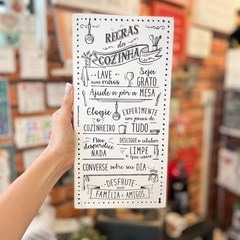 REGRAS
da
COZINHA
LAVE
suas mãos
Seja
GRATO
Ajude a pôr a MESA
Elogie
o
COZINHEIRO
EXPERIMENTE
um pouco de
TUDO
Não
desperdice
NADA
DESLIGUE o celular
LIMPE
o que usou
CONVERSE sobre seu DIA
DESFRUTE
FAMÍLIA e AMIGOS